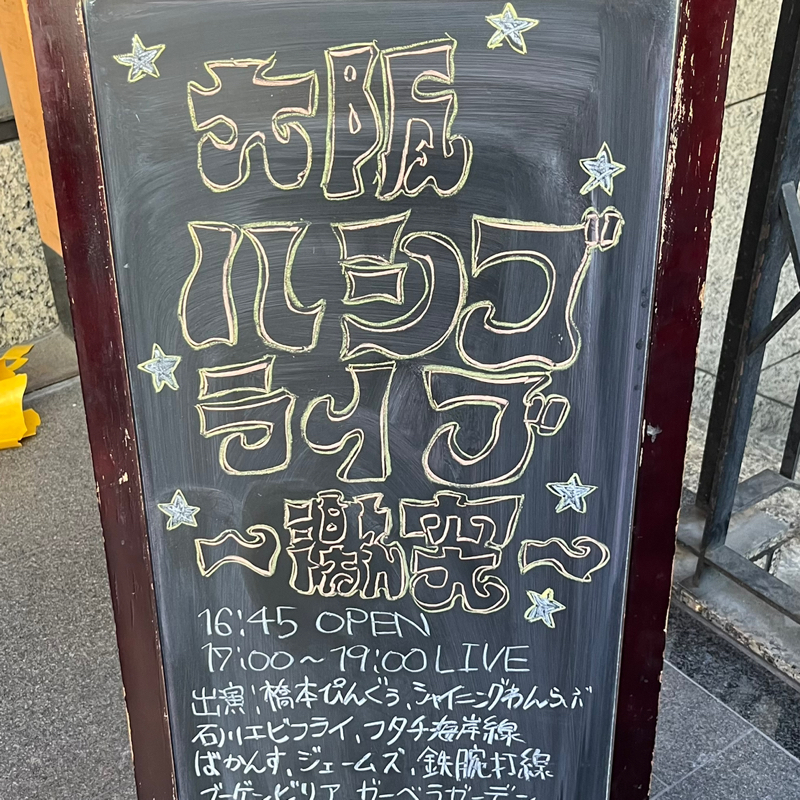 大阪
ハシゴ
ライブ
〜激突〜
16:45 OPEN
17:00〜19:00 LIVE
出演、橋本ぴんぐぅ、シャイニングわんらぶ
石川エビフライ、フタチ海岸線
ばかんす、ジェームズ、鉄腕打線
ブーゲンビリア、ガーベラガーデン